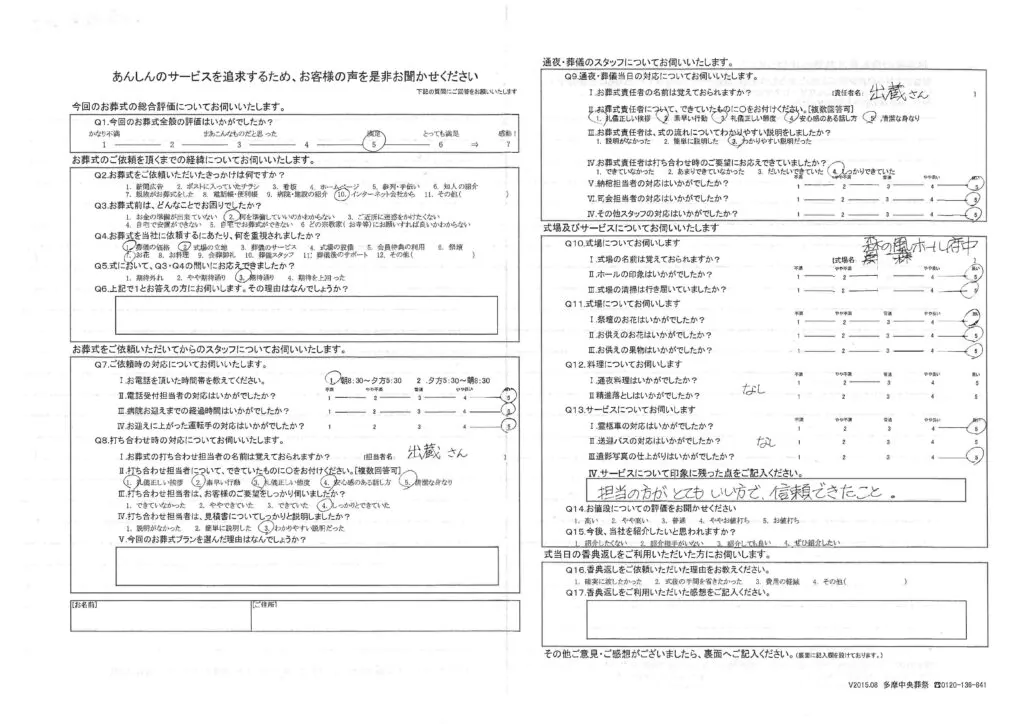 あんしんのサービスを追求するため、お客様の声を是非お聞かせください
下記の質問にご回答をお願いいたします
今回のお葬式の総合評価についてお伺いいたします。
Q1.今回のお葬式全般の評価はいかがでしたか?
かなり不満 まあこんなものだと思った 満足 とっても満足 感動!
1 2 3 4 5 6 ⇒ 7
お葬式のご依頼を頂くまでの経緯についてお伺いいたします。
Q2.お葬式をご依頼いただいたきっかけは何ですか?
1. 新聞広告 2. ポストに入っていたチラシ 3. 看板 4. ホームページ 5. 参列・手伝い 6. 知人の紹介
7. 親族がお葬式をした 8. 電話帳・便利帳 9. 病院・施設の紹介 10. インターネット会社から 11. その他( )
Q3.お葬式前は、どんなことでお困りでしたか?
1. お金の準備が出来ていない 2. 何を準備していいのかわからない 3. ご近所に迷惑をかけたくない
4. 自宅で安置ができない 5. 自宅でお葬式ができない 6. どの宗教家(お寺等)にお願いすれば良いかわからない
Q4.お葬式を当社に依頼するにあたり、何を重視されましたか?
1. 葬儀の価格 2. 式場の立地 3. 葬儀のサービス 4. 式場の設備 5. 会員特典の利用 6. 祭壇
7. お花 8. お料理 9. 会葬御礼 10. 葬儀スタッフ 11. 葬儀後のサポート 12. その他( )
Q5.式において、Q3・Q4の問いにお応えできましたか?
1. 期待外れ 2. やや期待通り 3. 期待通り 4. 期待を上回った
Q6.上記で1とお答えの方にお伺いします。その理由はなんでしょうか?
お葬式をご依頼いただいてからのスタッフについてお伺いいたします。
Q7.ご依頼時の対応についてお伺いいたします。
Ⅰ.お電話を頂いた時間帯を教えてください。 1. 朝8:30~夕方5:30 2. 夕方5:30~朝8:30
不満 やや不満 普通 やや良い 良い
Ⅱ.電話受付担当者の対応はいかがでしたか? 1 2 3 4 5
Ⅲ.病院お迎えまでの経過時間はいかがでしたか? 1 2 3 4 5
Ⅳ.お迎えに上がった運転手の対応はいかがでしたか? 1 2 3 4 5
Q8.打ち合わせ時の対応についてお伺いいたします。
Ⅰ.お葬式の打ち合わせ担当者の名前は覚えておられますか? [担当者名: 出蔵さん ]
Ⅱ.打ち合わせ担当者について、できていたものに○をお付けください。[複数回答可]
1. 礼儀正しい挨拶 2. 素早い行動 3. 礼儀正しい態度 4. 安心感のある話し方 5. 清潔な身なり
Ⅲ.打ち合わせ担当者は、お客様のご要望をしっかり伺いましたか?
1. できていなかった 2. ややできていた 3. できていた 4. しっかりとできていた
Ⅳ.打ち合わせ担当者は、見積書についてしっかりと説明しましたか?
1. 説明がなかった 2. 簡単に説明した 3. わかりやすい説明だった
Ⅴ.今回のお葬式プランを選んだ理由はなんでしょうか?
[お名前] [ご住所]
通夜・葬儀のスタッフについてお伺いいたします。
Q9.通夜・葬儀当日の対応についてお伺いいたします。
Ⅰ.お葬式責任者の名前は覚えておられますか? [責任者名: 出蔵さん ]
Ⅱ.お葬式責任者について、できていたものに○をお付けください。[複数回答可]
1. 礼儀正しい挨拶 2. 素早い行動 3. 礼儀正しい態度 4. 安心感のある話し方 5. 清潔な身なり
Ⅲ.お葬式責任者は、式の流れについてわかりやすい説明をしましたか?
1. 説明がなかった 2. 簡単に説明した 3. わかりやすい説明だった
Ⅳ.お葬式責任者は打ち合わせ時のご要望にお応えできていましたか?
1. できていなかった 2. あまりできていなかった 3. だいたいできていた 4. しっかりできていた
不満 やや不満 普通 やや良い 良い
Ⅴ.納棺担当者の対応はいかがでしたか? 1 2 3 4 5
Ⅵ.司会担当者の対応はいかがでしたか? 1 2 3 4 5
Ⅳ.その他スタッフの対応はいかがでしたか? 1 2 3 4 5
式場及びサービスについてお伺いいたします
Q10.式場についてお伺いします
Ⅰ.式場の名前は覚えておられますか? [式場名: 森の風ホール府中 ]
不満 やや不満 普通 やや良い 良い
Ⅱ.ホールの印象はいかがでしたか? 1 2 3 4 5
Ⅲ.式場の清掃は行き届いていましたか? 1 2 3 4 5
Q11.式場についてお伺いします
不満 やや不満 普通 やや良い 良い
Ⅰ.祭壇のお花はいかがでしたか? 1 2 3 4 5
Ⅱ.お供えのお花はいかがでしたか? 1 2 3 4 5
Ⅲ.お供えの果物はいかがでしたか? 1 2 3 4 5
Q12.料理についてお伺いします
不満 やや不満 普通 やや良い 良い
Ⅰ.通夜料理はいかがでしたか? 1 2 3 4 5
Ⅱ精進落としはいかがでしたか? なし 1 2 3 4 5
Q13.サービスについてお伺いします
不満 やや不満 普通 やや良い 良い
Ⅰ.霊柩車の対応はいかがでしたか? 1 2 3 4 5
Ⅱ.送迎バスの対応はいかがでしたか? なし 1 2 3 4 5
Ⅲ遺影写真の仕上がりはいかがでしたか? 1 2 3 4 5
Ⅳ.サービスについて印象に残った点をご記入ください。
担当の方がとてもいい方で、信頼できたこと。
Q14.お値段についての評価をお聞かせください
1. 高い 2. やや高い 3. 普通 4. ややお値打ち 5. お値打ち
Q15.今後、当社を紹介したいと思われますか?
1. 紹介したくない 2. 紹介相手がいない 3. 紹介しても良い 4. ぜひ紹介したい
式当日の香典返しをご利用いただいた方にお伺いします。
Q16.香典返しをご依頼いただいた理由をお教えください。
1. 確実に渡したかった 2. 式後の手間を省きたかった 3. 費用の軽減 4. その他( )
Q17.香典返しをご利用いただいた感想をご記入ください。
その他ご意見・ご感想がございましたら、裏面へご記入ください。(裏面に記入欄を設けております。)
V2015.08 多摩中央葬祭 ☎0120-136-841